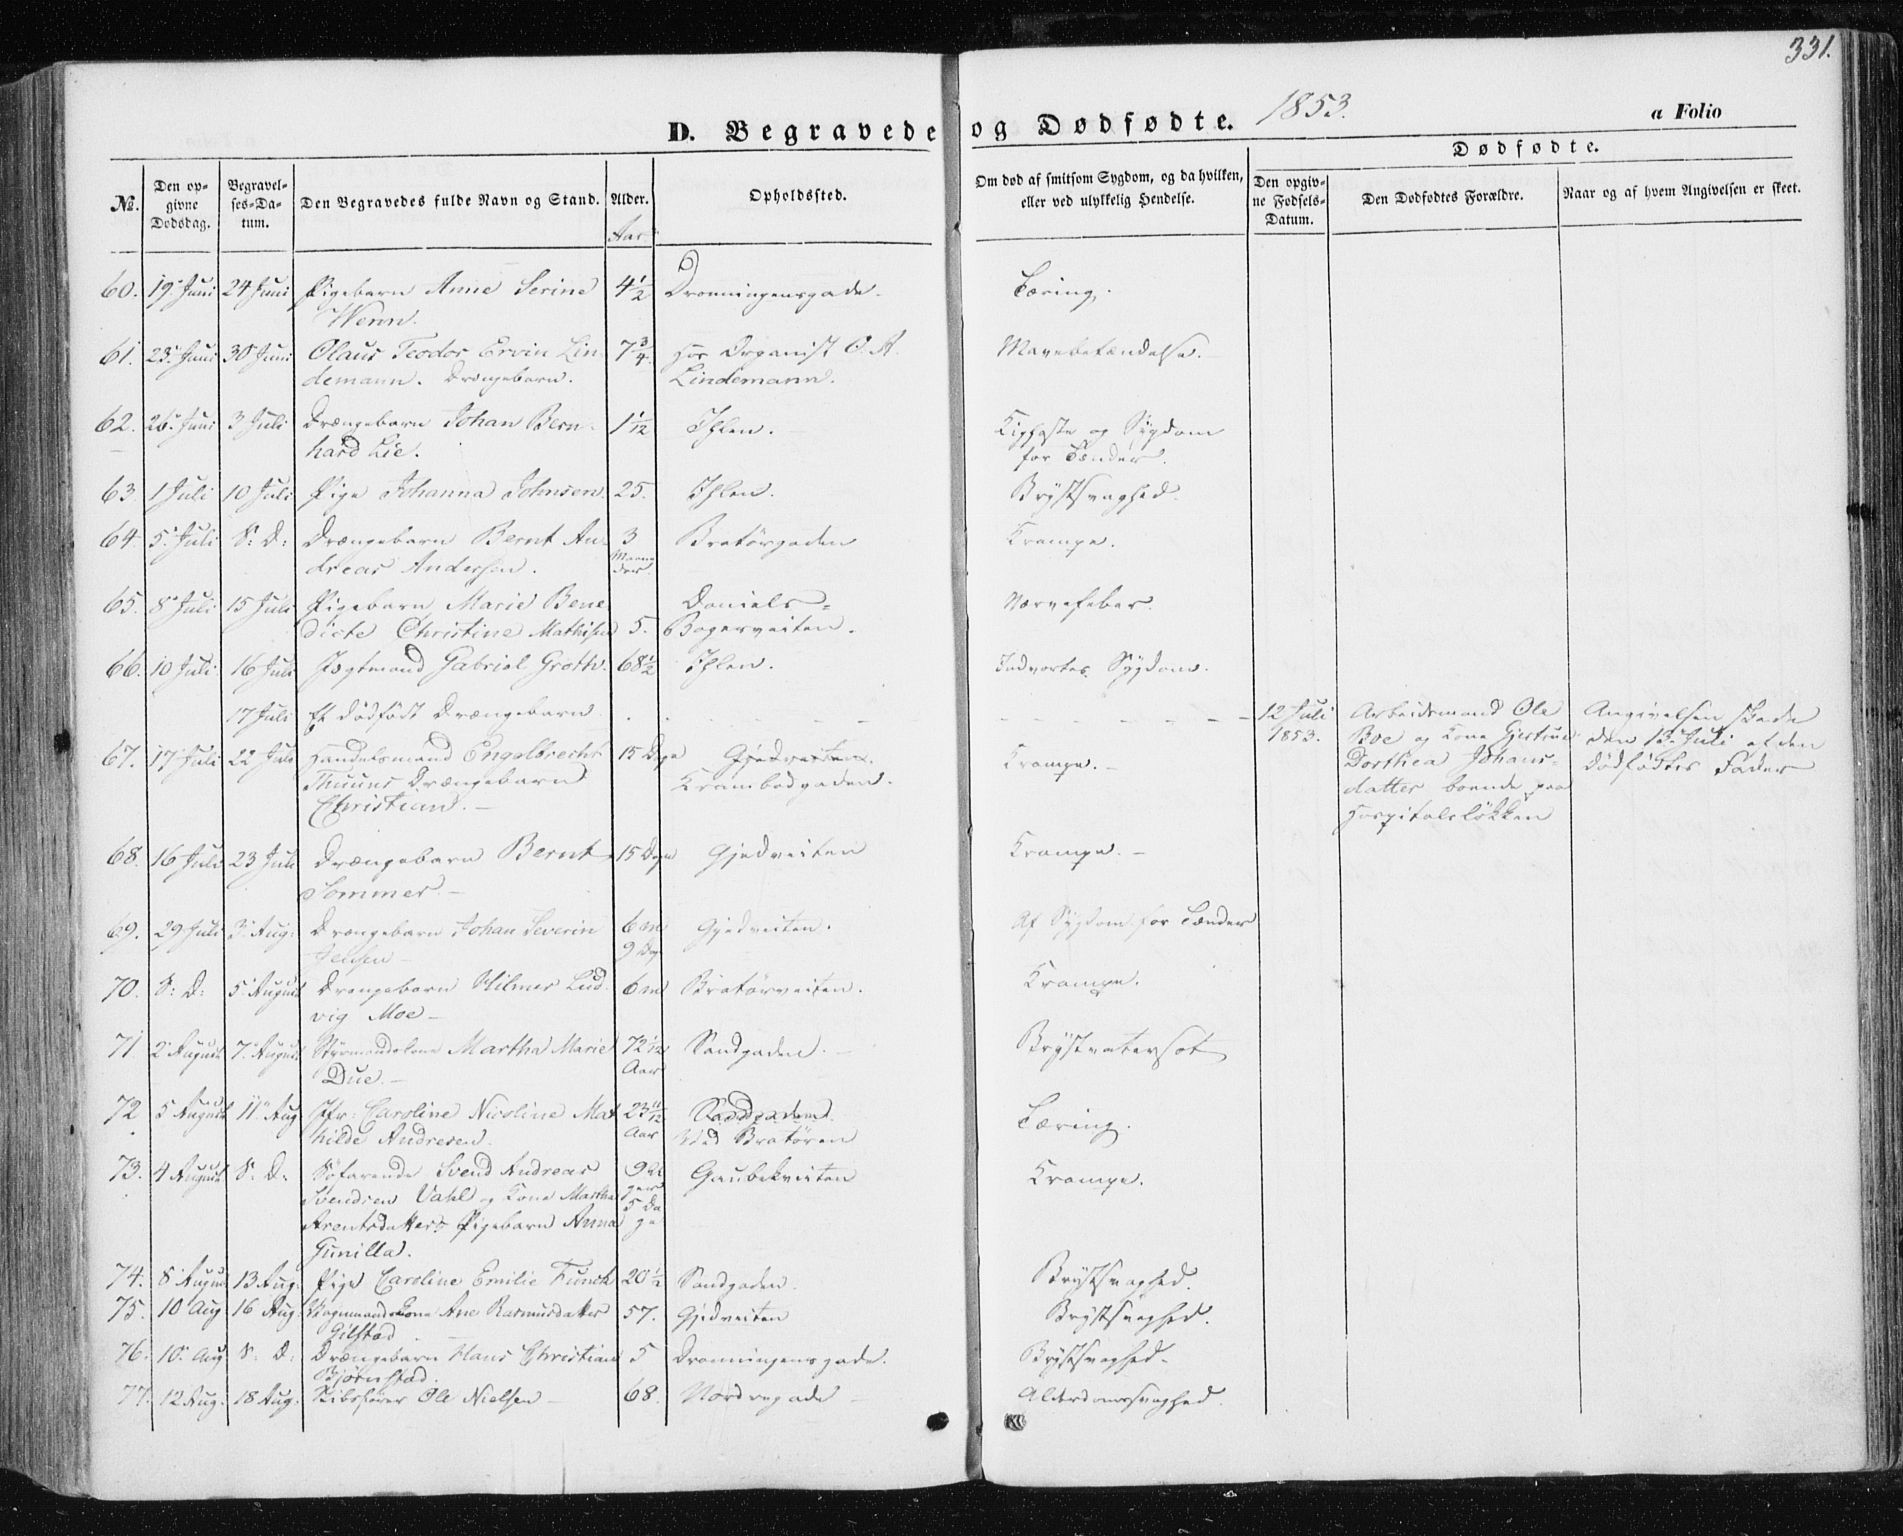 331.
D. Begravede og Dødfødte. 1853. a Folio
Dødfødte.
No. Den opgivne Dødsdag. Begravelses-Datum. Den Begravedes fulde Navn og Stand. Alder. Opholdssted. Om død af smitsom Sygdom, og da hvilken, eller ved ulykkelig Hendelse. Den opgivne Fødsels-Datum. Den Dødfødtes Forældre. Naar og af hvem Angivelsen er skeet.
Aar
60. 19 Juni 24 Juni Pigebarn Anne Serine 4 1/2 Dronningensgade. Tæring.
Wenn.
61. 25 Juni 30 Juni Olaus Teodor Ervin Lin 7 3/4. Hos Organist O. A. Mavebetændelse.
demann. Drengebarn. Lindemann.
62. 26 Juni 3 Juli Drængebarn Johan Bern 1 1/12 Ihlen. Kighoste og Sygdom
hard Lie. for Tænder.
63. 1 Juli 10 Juli Pige Johanna Johnsen 25. Ihlen. Brystsvaghed.
64. 5 Juli S: D: Drængebarn Bernt An 3 Bratørgaden Krampe.
dreas Andersen. Maaneder
65. 8 Juli 15 Juli Pigebarn Marie Bene Daniels= Nervefeber.
dicte Christine Mathisen 5. Bagerveiten.
66. 10 Juli 16 Juli Jægtmand Gabriel Groth. 68 1/2 Ihlen. Indvortes Sygdom.
17 Juli Et dødfødt Drængebarn 12 Juli Arbeidsmand Ole Angivelsen skede
1853. Boe og Kone Gjertrud den 13 Juli af den
67. 17 Juli 22 Juli Handelsmand Engelbrecht 15 Dage Gjedveiten. Krampe. Dorthea Johans- dødfødtes Fader
Thuuns Drængebarn Krambodgaden. datter boende paa
Christian. Hospitalsløkken
68. 16 Juli 23 Juli Drængebarn Bernt 15 Dage Gjedveiten Krampe.
Sommer.
69. 29 Juli 3 Aug: Drængebarn Johan Severin 6 m Gjedveiten. Af Sygdom for Tænder
Jensen 9 Dg
70. S: D: 5 August Drengebarn Hilmer Lud 6 m Bratørveiten. Krampe.
vig Moe
71. 2 August 7 August Styrmandskone Martha Marie 72 1/12 Sandgaden. Brystvatersot
Due. Aar
72 5 August 11 Aug Jfr: Caroline Nicoline Mat 23 11/12 Sandgaden Tæring.
hilde Andresen. Aar ved Bratøren
73. 4 August S: D: Søfarende Svend Andreas 9 Uger Gaubekveiten Krampe.
Svendsen Vahl og Kone Martha 5 Da
Arentsdatters Pigebarn Anna ge
Gunilla.
74. 8 August 13 Aug: Pige Caroline Emilie Funch 20 1/2 Sandgaden. Brystsvaghed.
75. 10 Aug 16 Aug: Kone Ane Rasmusdatter 57. Gjedveiten Brystsvaghed.
Gilstad
76. 10 Aug S: D: Drængebarn Hans Christian 5 Dronningensgade. Brystsvaghed.
Bjørnstad.
77. 12 Aug: 18 Aug: Skibsfører Ole Nielsen 68. Nordregade Alderdomssvaghed.